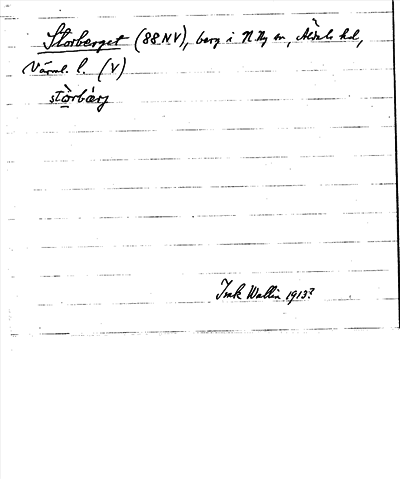 Storberget (88 NV), berg i N. Ny sn, Älvdals hd,
Värml. l. (V)
stòrbærj
Wallin 1913?